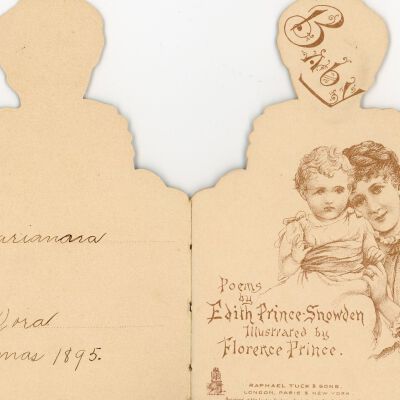 arianara
Nora
mas 1895.
Baby
Poems
by
Edith Prince-Snowden
Illustrated by
Florence Prince.
RAPHAEL TUCK & SONS.
LONDON, PARIS & NEW YORK